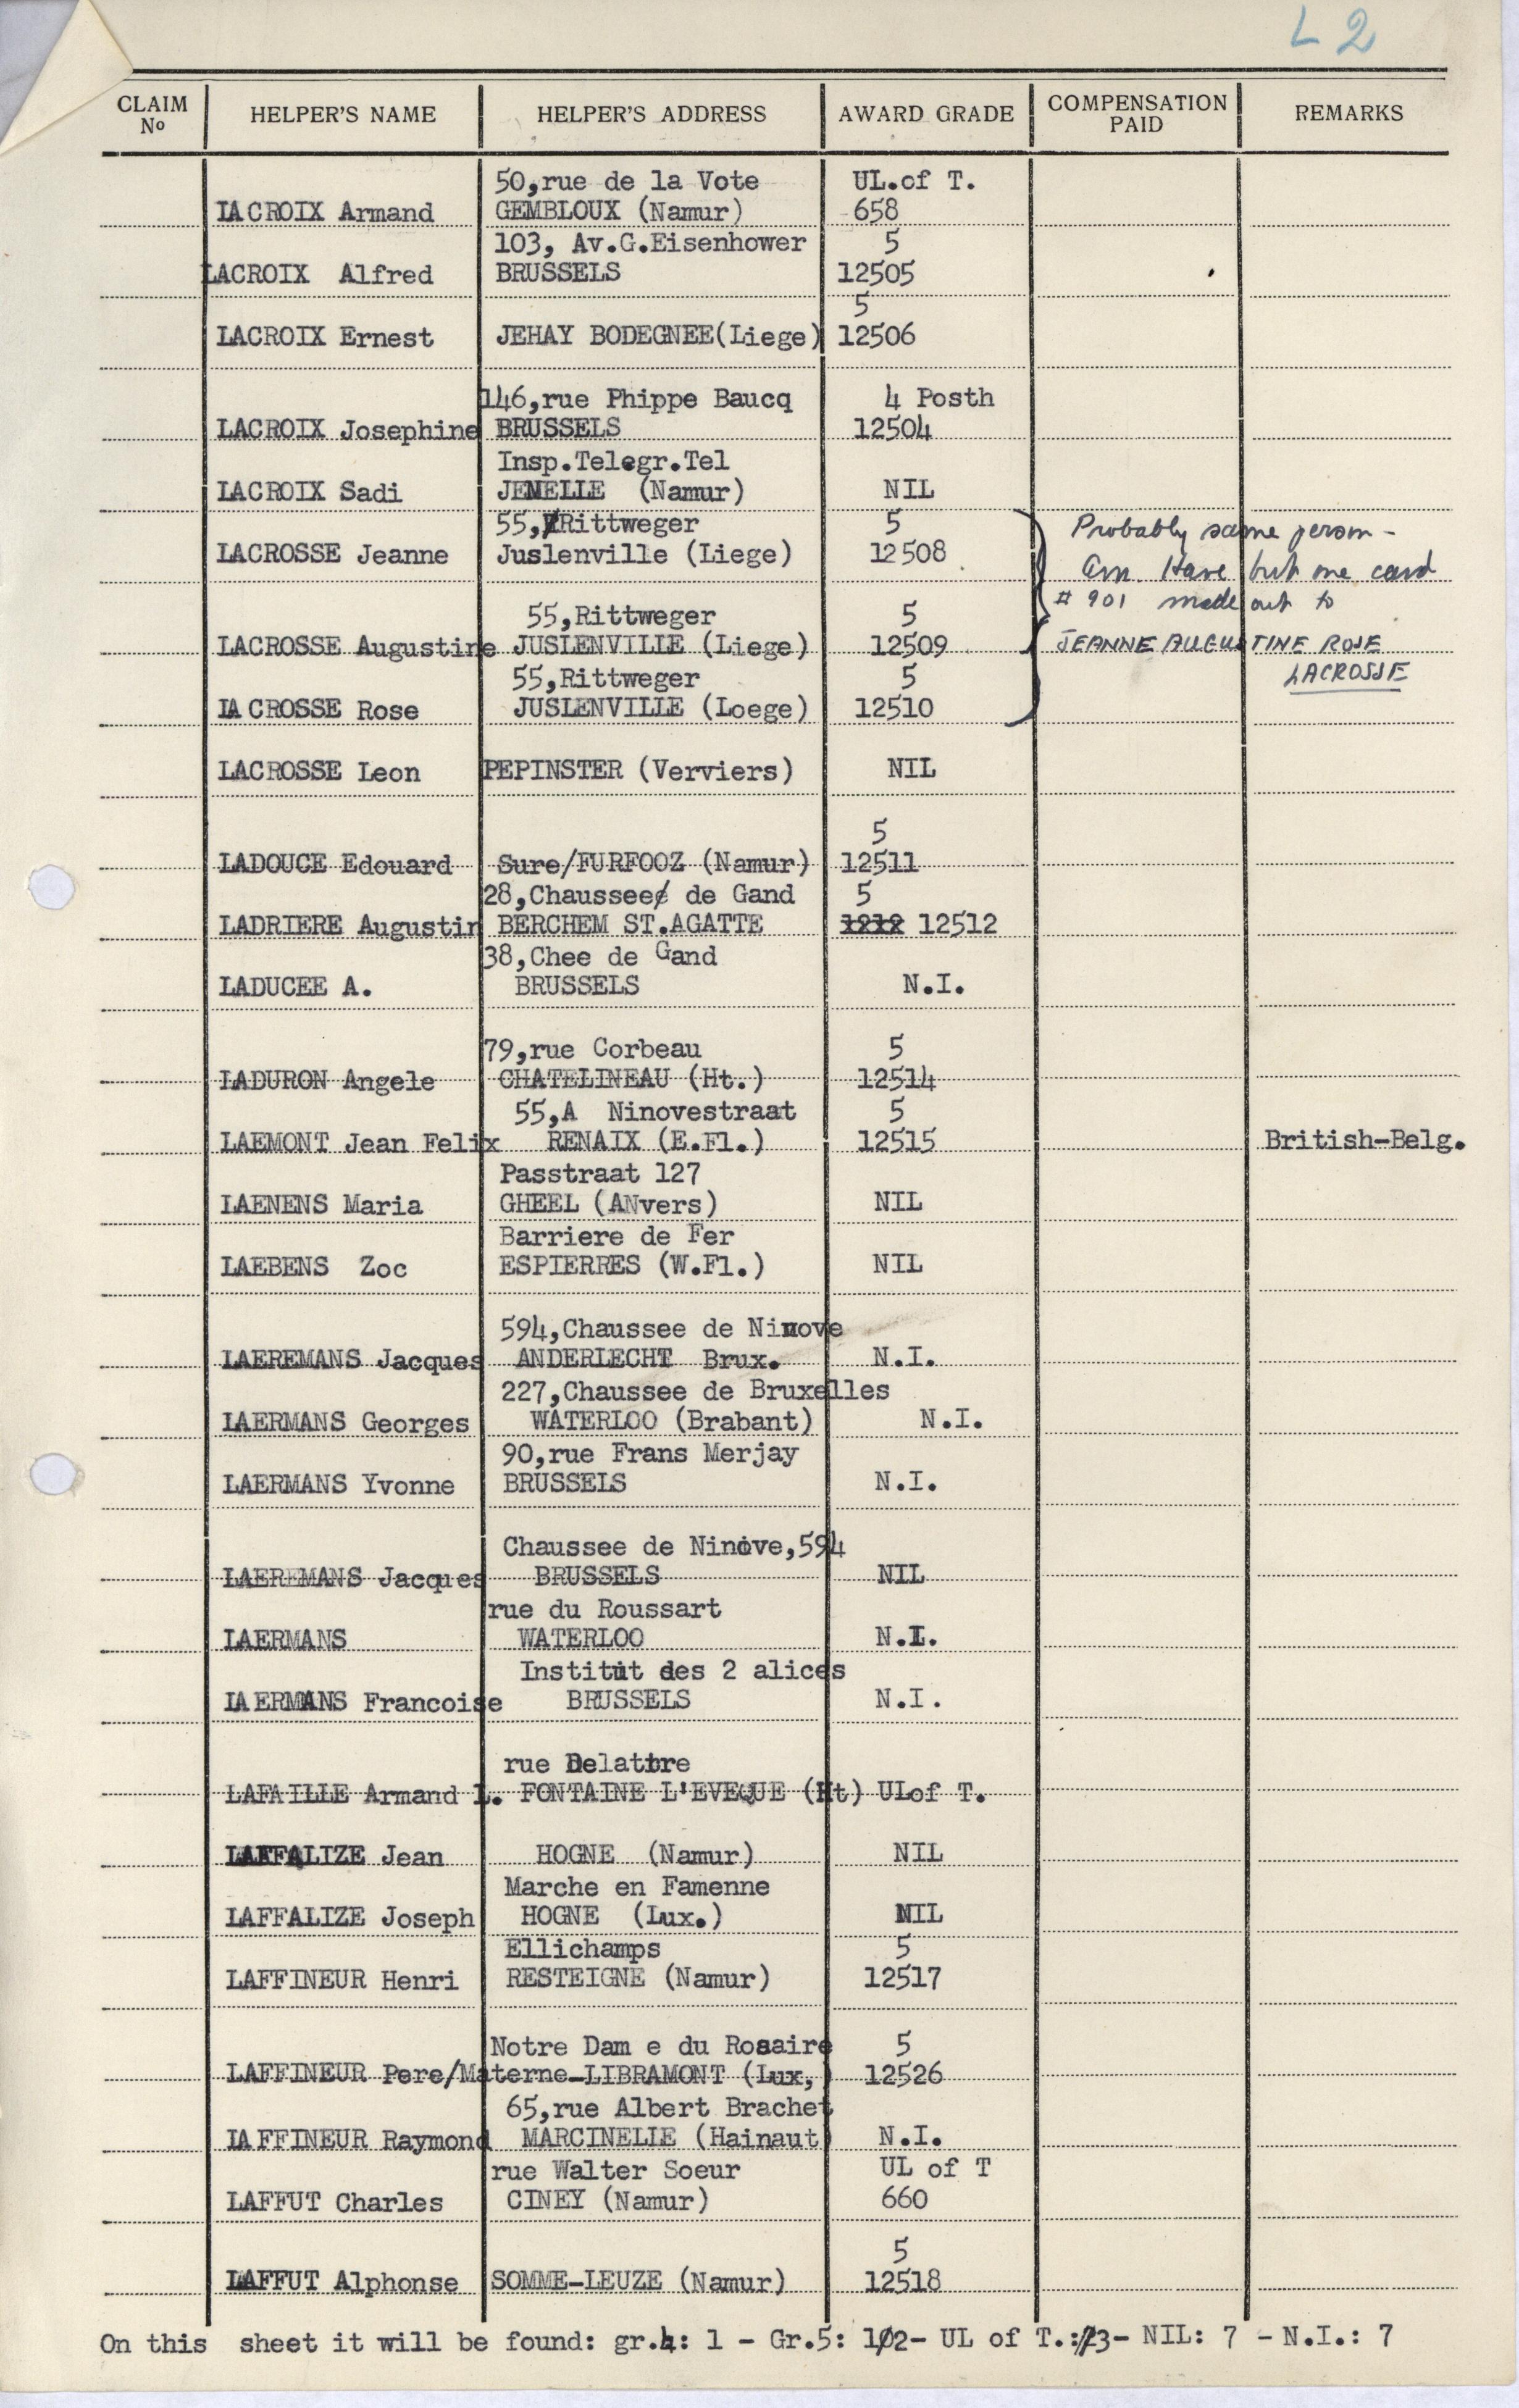 L 2
CLAIM No HELPER'S NAME HELPER'S ADDRESS AWARD GRADE COMPENSATION PAID REMARKS
50,rue de la Vote UL.of T.
LACROIX Armand GEMBLOUX (Namur) 658
103, Av.G.Eisenhower 5
LACROIX Alfred BRUSSELS 12505
5
LACROIX Ernest JEHAY BODEGNEE(Liege) 12506
146,rue Phippe Baucq 4 Posth
LACROIX Josephine BRUSSELS 12504
Insp.Telegr.Tel
LACROIX Sadi JEMELLE (Namur) NIL
55,Rittweger 5 Probably same person -
LACROSSE Jeanne Juslenville (Liege) 12508 Am. Have but one card
# 901 made out to
55,Rittweger 5
LACROSSE Augustine JUSLENVILLE (Liege) 12509 JEANNE AUGUSTINE ROSE
55,Rittweger 5 LACROSSE
LACROSSE Rose JUSLENVILLE (Loege) 12510
LACROSSE Leon PEPINSTER (Verviers) NIL
5
LADOUCE Edouard Sure/FURFOOZ (Namur) 12511
28,Chaussee de Gand 5
LADRIERE Augustin BERCHEM ST.AGATTE 1212 12512
38,Chee de Gand
LADUCEE A. BRUSSELS N.I.
79,rue Corbeau 5
LADURON Angele CHATELINEAU (Ht.) 12514
55,A Ninovestraat 5
LAEMONT Jean Felix RENAIX (E.Fl.) 12515 British-Belg.
Passtraat 127
LAENENS Maria GHEEL (ANvers) NIL
Barriere de Fer
LAEBENS Zoc ESPIERRES (W.Fl.) NIL
594,Chaussee de Ninove
LAEREMANS Jacques ANDERLECHT Brux. N.I.
227,Chaussee de Bruxelles
LAERMANS Georges WATERLOO (Brabant) N.I.
90,rue Frans Merjay
LAERMANS Yvonne BRUSSELS N.I.
Chaussee de Ninove,594
LAEREMANS Jacques BRUSSELS NIL
rue du Roussart
LAERMANS WATERLOO N.I.
Institut des 2 alices
LAERMANS Francoise BRUSSELS N.I.
rue Delattre
LAFAILLE Armand L. FONTAINE L'EVEQUE (Ht) ULof T.
LAFFALIZE Jean HOGNE (Namur) NIL
Marche en Famenne
LAFFALIZE Joseph HOGNE (Lux.) NIL
Ellichamps 5
LAFFINEUR Henri RESTEIGNE (Namur) 12517
Notre Dam e du Rosaire 5
LAFFINEUR Pere/Materne-LIBRAMONT (Lux,) 12526
65,rue Albert Brachet
LAFFINEUR Raymond MARCINELLE (Hainaut) N.I.
rue Walter Soeur UL of T
LAFFUT Charles CINEY (Namur) 660
5
LAFFUT Alphonse SOMME-LEUZE (Namur) 12518
On this sheet it will be found: gr.4: 1 - Gr.5: 12- UL of T.:3- NIL: 7 - N.I.: 7